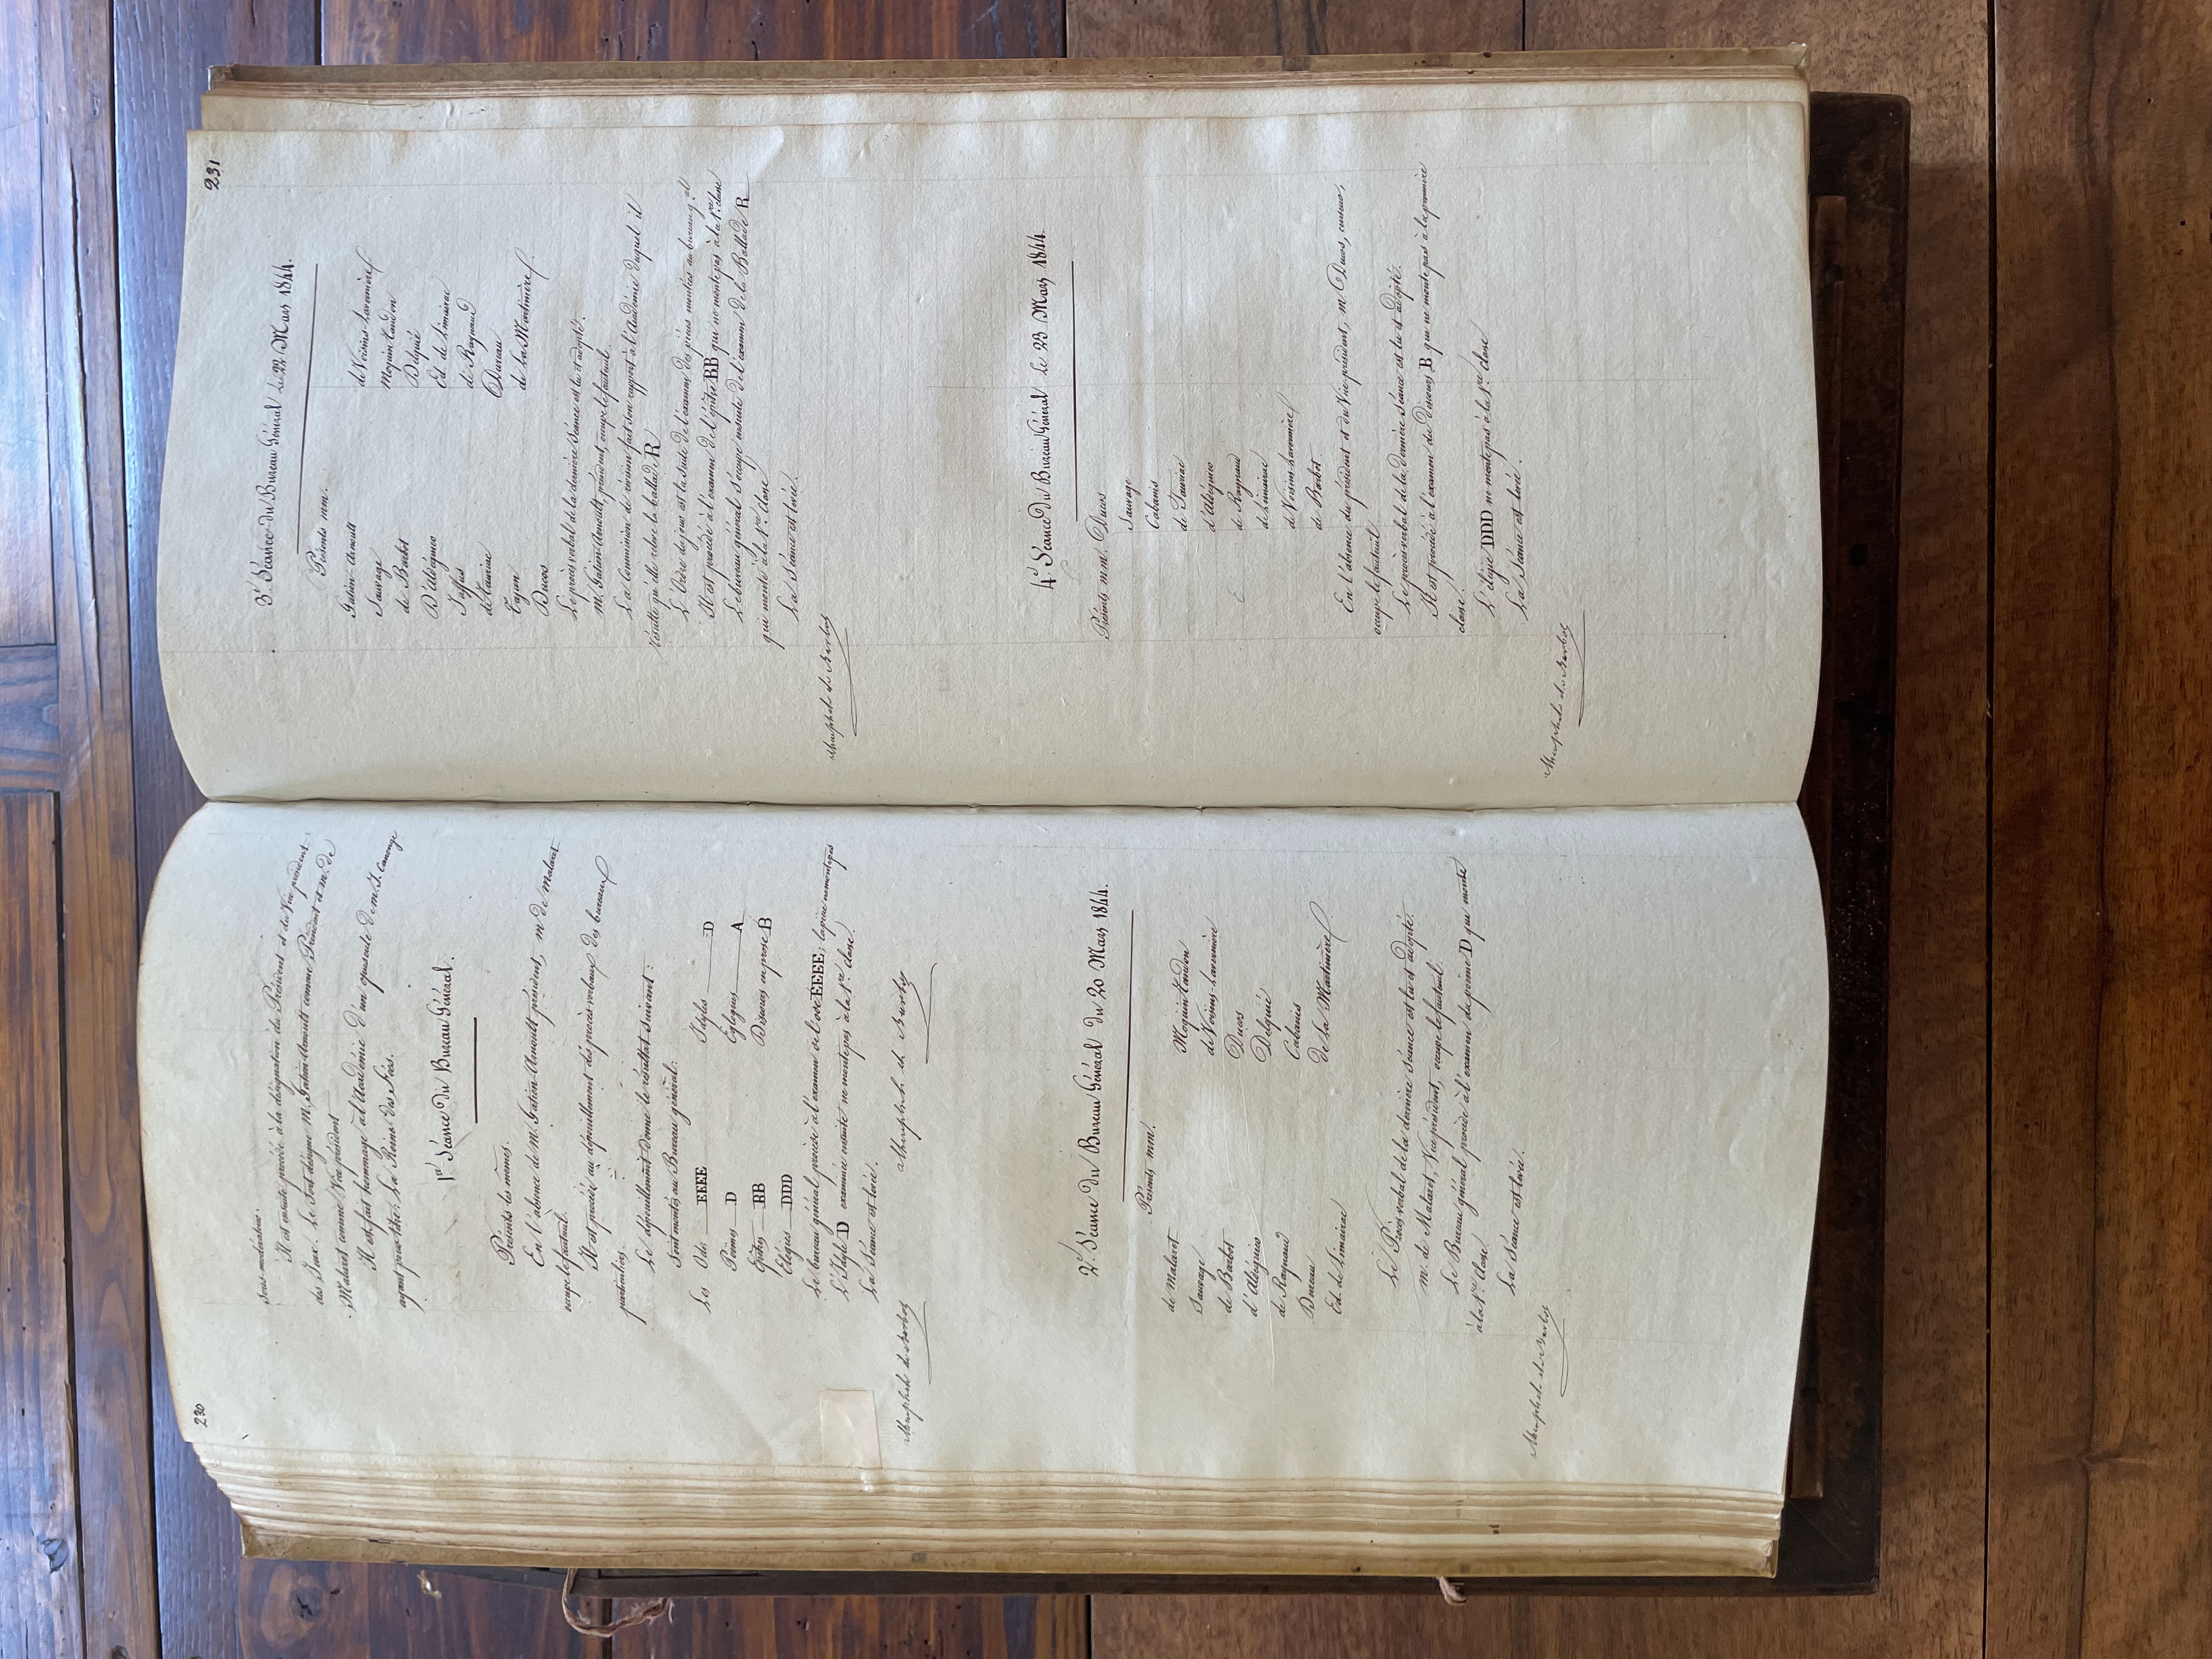 230
Sous-modérateur.
Il est ensuite procédé à la désignation du Président et du Vice-président
des Jeux. Le Sort désigne M. Gatien-Arnoult comme Président et M. de
Malaret comme Vice président
Il est fait hommage à l'académie d'un opuscule de M. J. Canonge
ayant pour titre: La Reine des Fées.
1re Séance du Bureau Général.
Présents les mêmes.
En l'absence de M. Gatien-Arnoult président, M. de Malaret
occupe le fauteuil.
Il est procédé au dépouillement des procès-verbaux des bureaux
particuliers.
Le dépouillement donne le résultat suivant :
Sont montés au Bureau général:
Les Odes EEEE Idylle D
Poèmes D Eglogues A
Epitres BB Discours en prose B
Elégies DDD
Le bureau général procède à l'examen de l'ode EEEE; la pièce ne monte pas
L'Idylle D examinée ensuite ne monte pas à la 1re classe.
La Séance est levée.
2e Séance du Bureau Général du 20 Mars 1844.
Présents MM.
de Malaret Moquin tandon
Sauvage de Voisins-Lavernière
de Barbot Ducos
d'Aldéguier Delquié
de Raynaud Cabanis
Dureau de la Martinière
Ed. de Limairac
Le Procès verbal de la dernière séance est lu et adopté.
M. de Malaret, Vice président, occupe le fauteuil.
Le Bureau général procède à l'examen du poème D qui monte
à la 1re classe.
La Séance est levée.
231
3e Séance du Bureau Général du 22 Mars 1844.
Présents MM.
Gatien-Arnoult de Voisins-Lavernière
Sauvage Moquin tandon
de Barbot Delquié
D'Aldéguier Ed. de Limairac
Jaffus de Raynaud
de Tauriac Dureau
Cayon de la Martinière
Ducos
Le procès verbal de la dernière Séance est lu et adopté.
M. Gatien-Arnoult, président, occupe le fauteuil.
La Commission de révision fait son rapport à l'Académie duquel il
résulte qu'elle relève la ballade R
L'Ordre du jour est la suite de l'examen des pièces montées au bureau gal
Il est procédé à l'examen de l'épitre BB qui ne monte pas à la 1re classe
Le bureau général s'occupe ensuite de l'examen de la Ballade R
qui monte à la 1re classe
La Séance est levée.
4e Séance du Bureau Général le 23 Mars 1844.
Présents MM. Ducos
Sauvage
Cabanis
de Tauriac
d'Aldéguier
de Raynaud
de Limairac
de Voisins Lavernière
de Barbot
En l'absence du président et du Vice-président, M. Ducos, censeur,
occupe le fauteuil
Le procès-verbal de la dernière Séance est lu et adopté.
Il est procédé à l'examen du discours B qui ne monte pas à la première
classe.
L'élégie DDD ne monte pas à la 1re classe
La Séance est levée.